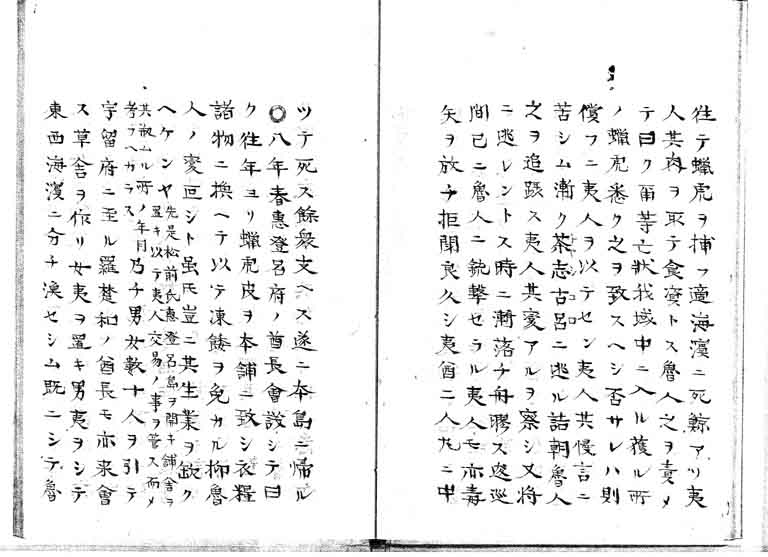 往テ蝋虎ヲ捕フ適海濵ニ死鯨アリ夷
人其肉ヲ取テ食食トス魯人之ヲ責メ
テ曰ク甬等亡状我域中ニ入ル獲ル所
ノ蝋虎悉ク之ヲ致スヘシ否サレハ則
償フニ夷人ヲ以テセン夷人其慢言ニ
苦シム漸ク茶志古呂ニ逃ル詰朝魯人
シコロ
之ヲ追跡ス夷人其変アルヲ察シ又将
ニ逃レントス時ニ漸落チ舟膠ス逡巡
間已ニ魯人ニ銃撃セラル夷人モ亦毒
矢ヲ放チ拒閗良久シ夷酋二人丸ニ中
ツテ死ス餘衆支ヘス遂ニ本島ニ帰ル
〇八年春惠登呂府ノ酋長會設シテ曰
ク往年ヨリ蝋虎皮ヲ本舗ニ致シ衣糧
諸物ニ換ヘテ以テ凍餒ヲ免カル抑魯
人ノ変叵シト虽𪜈豈ニ其生業ヲ欧ク
ヘケンヤ
先是松前氏惠登呂島ヲ開キ舗舎ヲ
置キ以テ夷人交易ノ事ヲ管ス而メ
其瓶ムル所ノ年月
考フヘカラス
乃チ男女數十人ヲ引テ
宇留府ニ至ル羅楚和ノ酋長モ亦来會
ス草舎ヲ作リ女夷ヲ置キ男夷ヲシテ
東西海濵ニ分チ漁セシム既ニシテ魯